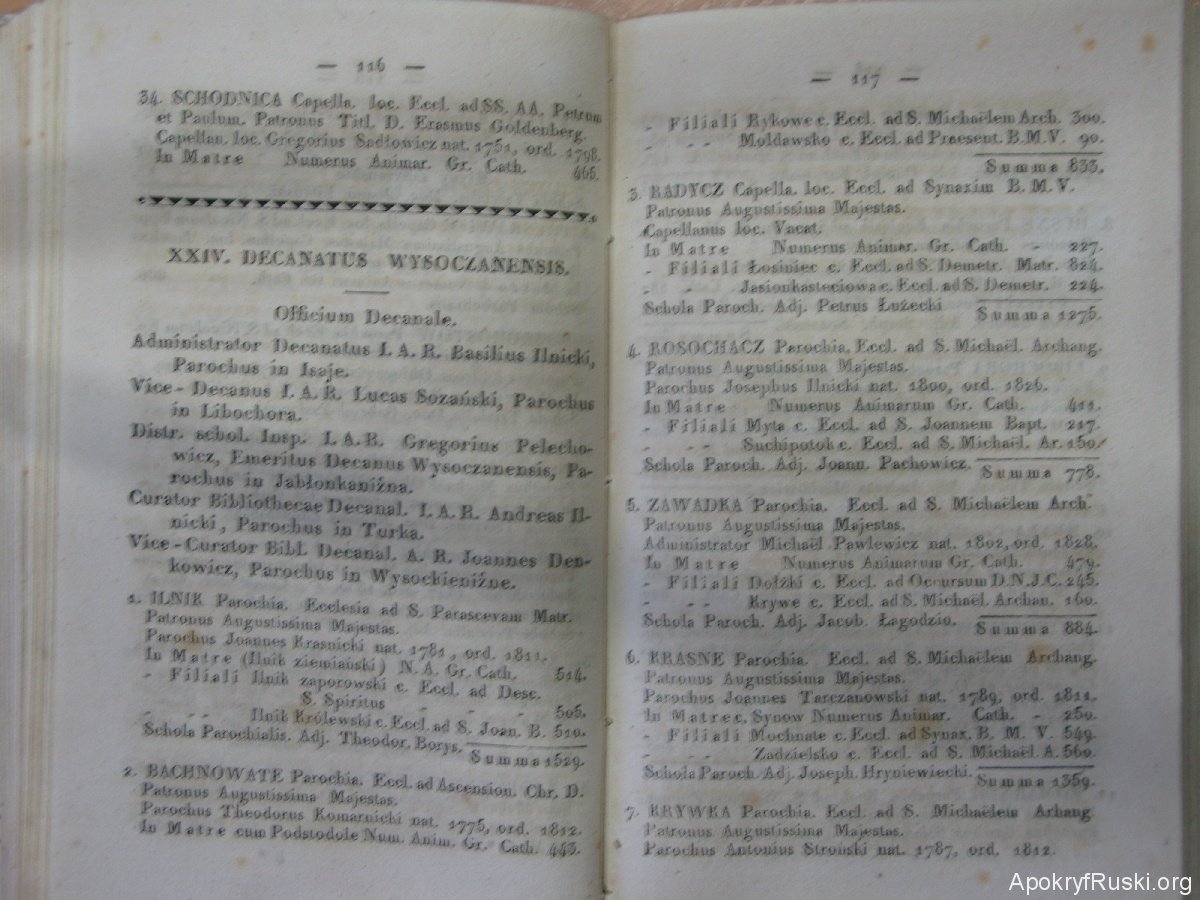 — 116 —
34. SCHODNICA Capella. loc. Eccl. ad SS. AA. Petrum
et Paulum. Patronus Titl. D. Erasmus Goldenberg.
Capellan. loc. Gregorius Sadłowicz nat. 1751, ord. 1798.
In Matre Numerus Animar. Gr. Cath. 466.
XXIV. DECANATUS WYSOCZANENSIS.
Officium Decanale.
Administrator Decanatus I. A. R. Basilius Ilnicki,
Parochus in Isaje.
Vice-Decanus I. A. R. Lucas Sozański, Parochus
in Libochora.
Distr. schol. Insp. I. A. R. Gregorius Pelecho-
wicz, Emeritus Decanus Wysoczanensis, Pa-
rochus in Jabłonkaniżna.
Curator Bibliothecae Decanal. I. A. R. Andreas Il-
nicki, Parochus in Turka.
Vice-Curator Bibl. Decanal. A. R. Joannes Den-
kowicz, Parochus in Wysockieniżne.
1. ILNIK Parochia. Ecclesia ad S. Parascevam Matr.
Patronus Augustissima Majestas.
Parochus Joannes Krasnicki nat. 1781, ord. 1811.
In Matre (Ilnik ziemiański) N. A. Gr. Cath. 514.
- Filiali Ilnik zaporowski c. Eccl. ad Desc.
S. Spiritus - - - 505.
- - - Ilnik Królewski c. Eccl. ad S. Joan. B. 510.
Schola Parochialis. Adj. Theodor, Borys. Summa 1529.
2. BACHNOWATE Parochia. Eccl. ad Ascension. Chr. D.
Patronus Augustissima Majestas.
Parochus Theodorus Komarnicki nat. 1775, ord. 1812.
In Matre cum Podstodole Num. Anim. Gr. Cath. 443.
— 117 —
- Filiali Rykowe c. Eccl. ad S. Michaëlem Arch. 300.
- - - Moldawsko c. Eccl. ad Praesent. B. M. V. 90.
Summa 833.
3. RADYCZ Capella. loc. Eccl. ad Synaxim B. M. V.
Patronus Augustissima Majestas.
Capellanus loc. Vacat.
In Matre Numerus Animar. Gr. Cath. - 227.
- Filiali Łosiniec c. Eccl. ad S. Demetr. Matr. 824.
- - Jasionkasteciowa c. Eccl. ad S. Demetr. 224.
Schola Paroch. Adj. Petrus Łużecki Summa 1275.
4. ROSOCHACZ Parochia. Eccl. ad S. Michaël. Archang.
Patronus Augustissima Majestas.
Parochus Josephus Ilnicki nat. 1800, ord. 1826.
In Matre Numerus Animarum Gr. Cath. 411.
- Filiali Myta c. Eccl. ad S. Joannem Bapt. 217.
- - - Suchipotok c. Eccl. ad S. Michaël. Ar. 150.
Schola Paroch. Adj. Joann. Pachowicz. Summa 778.
5. ZAWADKA Parochia. Eccl. ad S. Michaëlem Arch.
Patronus Augustissima Majestas.
Administrator Michaël Pawlewicz nat. 1802, ord. 1828.
In Matre Numerus Animarum Gr. Cath. 479.
- Filiali Dołżki c. Eccl. ad Occursum D. N. J. C. 245.
- - - Krywe c. Eccl. ad S. Michaël. Archan. 160.
Schola Paroch. Adj. Jacob. Łagodzio. Summa 884.
6. KRASNE Parochia. Eccl. ad S. Michaëlem Archang.
Patronus Augustissima Majestas.
Parochus Joannes Tarczanowski nat. 1789, ord. 1811.
In Matre c. Synow Numerus Animar. Cath. - 250.
- Filiali Mochnate c. Eccl. ad Synax. B. M. V. 549.
- - - Zadzielsko c. Eccl. ad S. Michaël. A. 560.
Schola Paroch. Adj. Joseph. Hryniewiecki. Summa 1359.
7. KRYWKA Parochia. Eccl. ad S. Michaëlem Arhang
Patronus Augustissima Majestas.
Parochus Antonius Stroński nat. 1787, ord. 1812.
ApokryfRuski.org